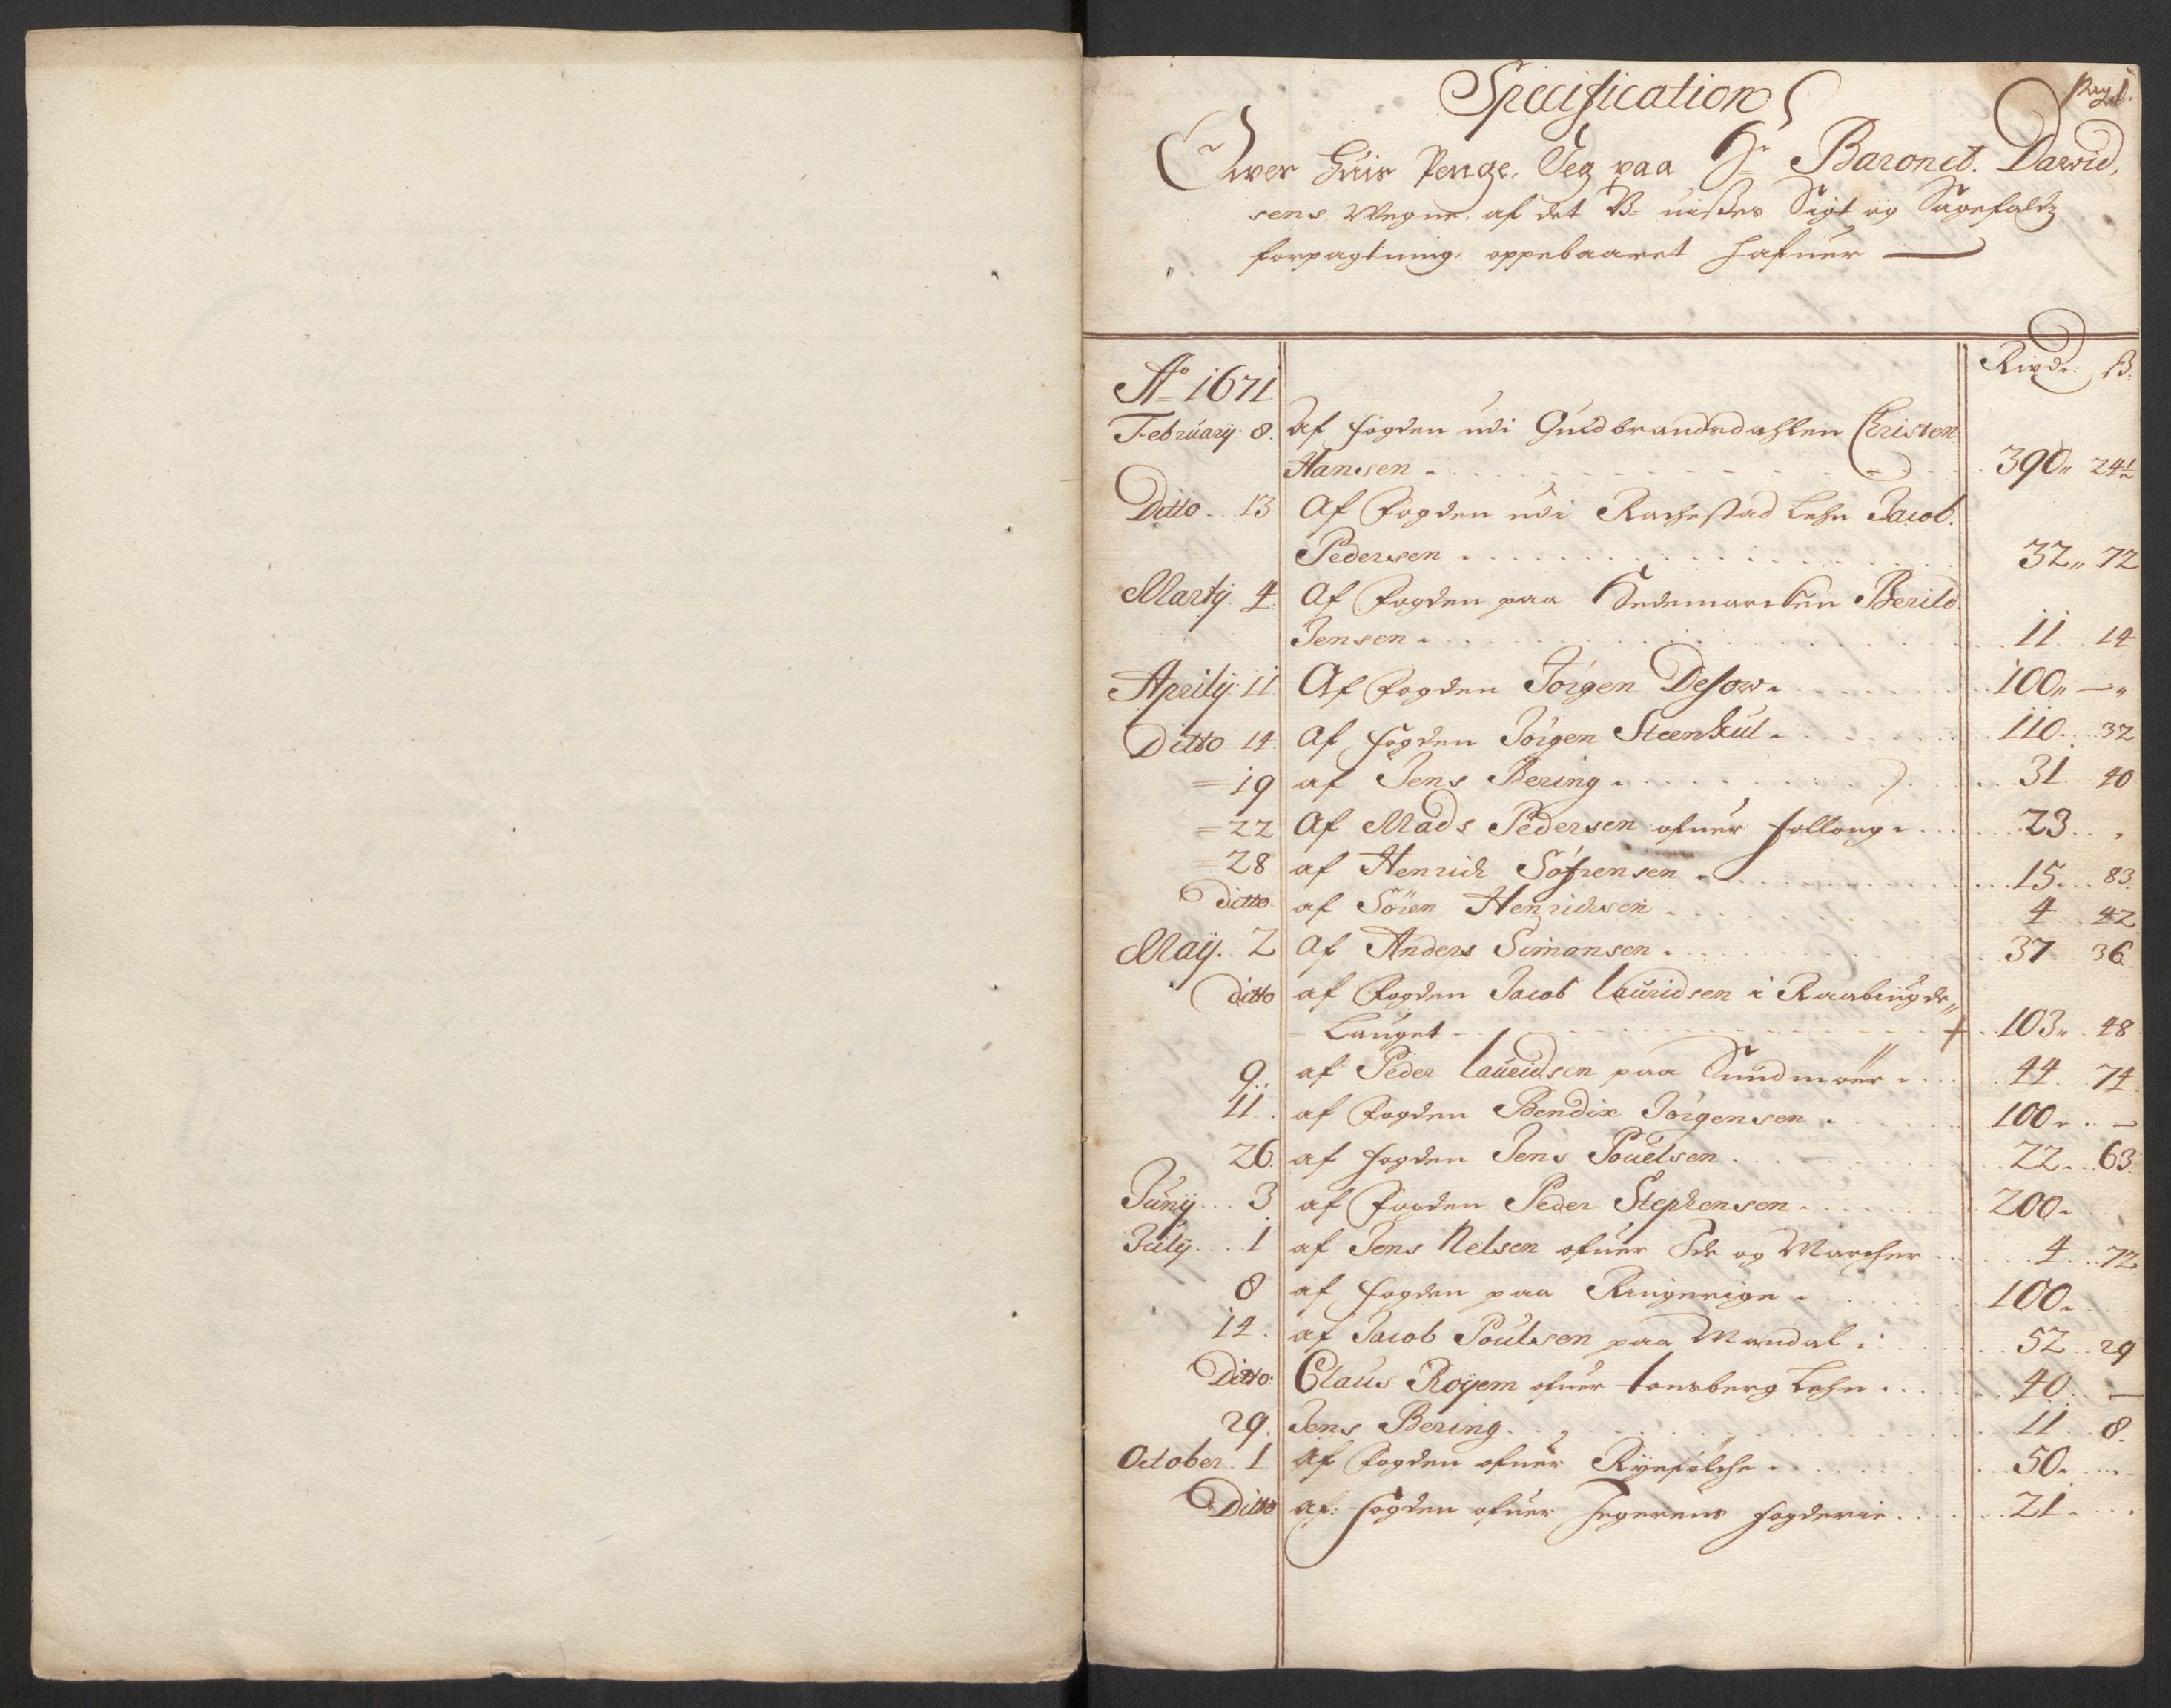 Pag. 1.
Specification
Ower huis Penge, Jeg paa Hr Baronet. Dawid,
sens Wegne, af det U- uisses Sigt og Sagefaldz
forpagtning, oppebaaret hafuer
Rixdr: ß:
Ao 1671
February: 8. Af fogden udi Guldbrandsdahlen Christen
Hansen . 390,, 24½
Ditto. 13 Af Fogden udi Rachestad Lehn Jacob
Pedersen . 32,, 72
Marty. 4. Af Fogden paa Hedemarcken Berild
Jensen . 11 14
Aprily. 11 Af Fogden Jörgen Desow . 100,, —
Ditto 14. Af fogden Jörgen Steenkul . 110 32
= 19 af Jens Bering . 31 40
= 22 Af Mads Pedersen ofuer folloug . 23
= 28 af Henrich Söfrensen . 15 83
ditto af Sören Henrichsen . 4 42
Maÿ. 2 Af Anders Simonsen . 37 36
ditto af Fogden Jacob Lauridsen i Raabiugde,,
Lauget 103,, 48
9. af Peder Lauridsen paa Sundmöer . 44 74
11. af Fogden Bendix Jörgensen . 100 —
26. af fogden Jens Pouelsen . 22 63
Juny 3 af Fogden Peder Stephensen . 200
July 1 af Jens Nelsen ofuer Ide og Marcher 4 72
8 af fogden paa Ringerige . 100
14. af Jacob Poulsen paa Mandal . 52 29
Ditto: Claus Röyem ofuer tonsberg Lehn . 40 —
29. Jens Bering . 11 8
October 1 Af Fogden ofuer Ryefölche . 50
Ditto af: fogden ofuer Jegerens fogderie . 21